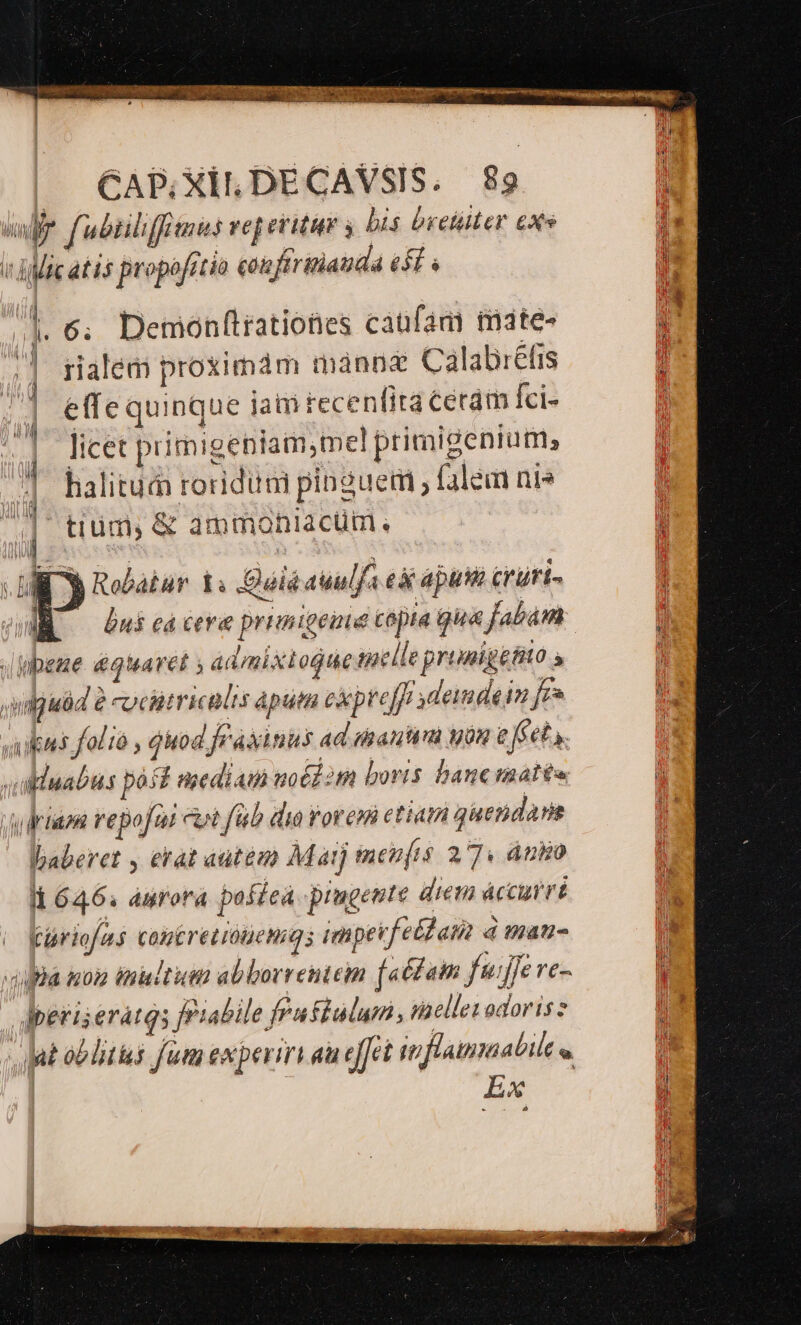 CAP. XII. DE CAVSIS. 89
subtilissimus reperitur, bis breuiter ex-
plicatis propositio confirmanda est.
6. Demonstrationes causam mate-
rialem proximam mannæ Calabrésis
esse quinque jam recensita ceram sci-
licet primigeniam, mel primigenium,
halitum roridum pinguem, salem ni-
trum, & ammoniacum.
Robatur 1. Quia auulsa ex apum cruri-
bus ea ceræ primigeniæ copia quæ fabam
pene æquaret, admixtoque melle primigenio,
quod è ventriculis apum expressi, deinde in fi-
cus folio, quod fraxinus ad manum non esset,
duabus post mediam noctem horis hanc mate-
riam reposui vt sub dio rorem etiam quendam
haberet, erat autem Maij mensis 27. anno
1646. aurora postea pingente diem accurri
curiosus concretionemq; imperfectam à man-
na non multum abhorrentem factam fuisse re-
periserátq; friabile frustulum, mellei odoris:
at oblitus sum experiri an esset inflammabile.
Ex